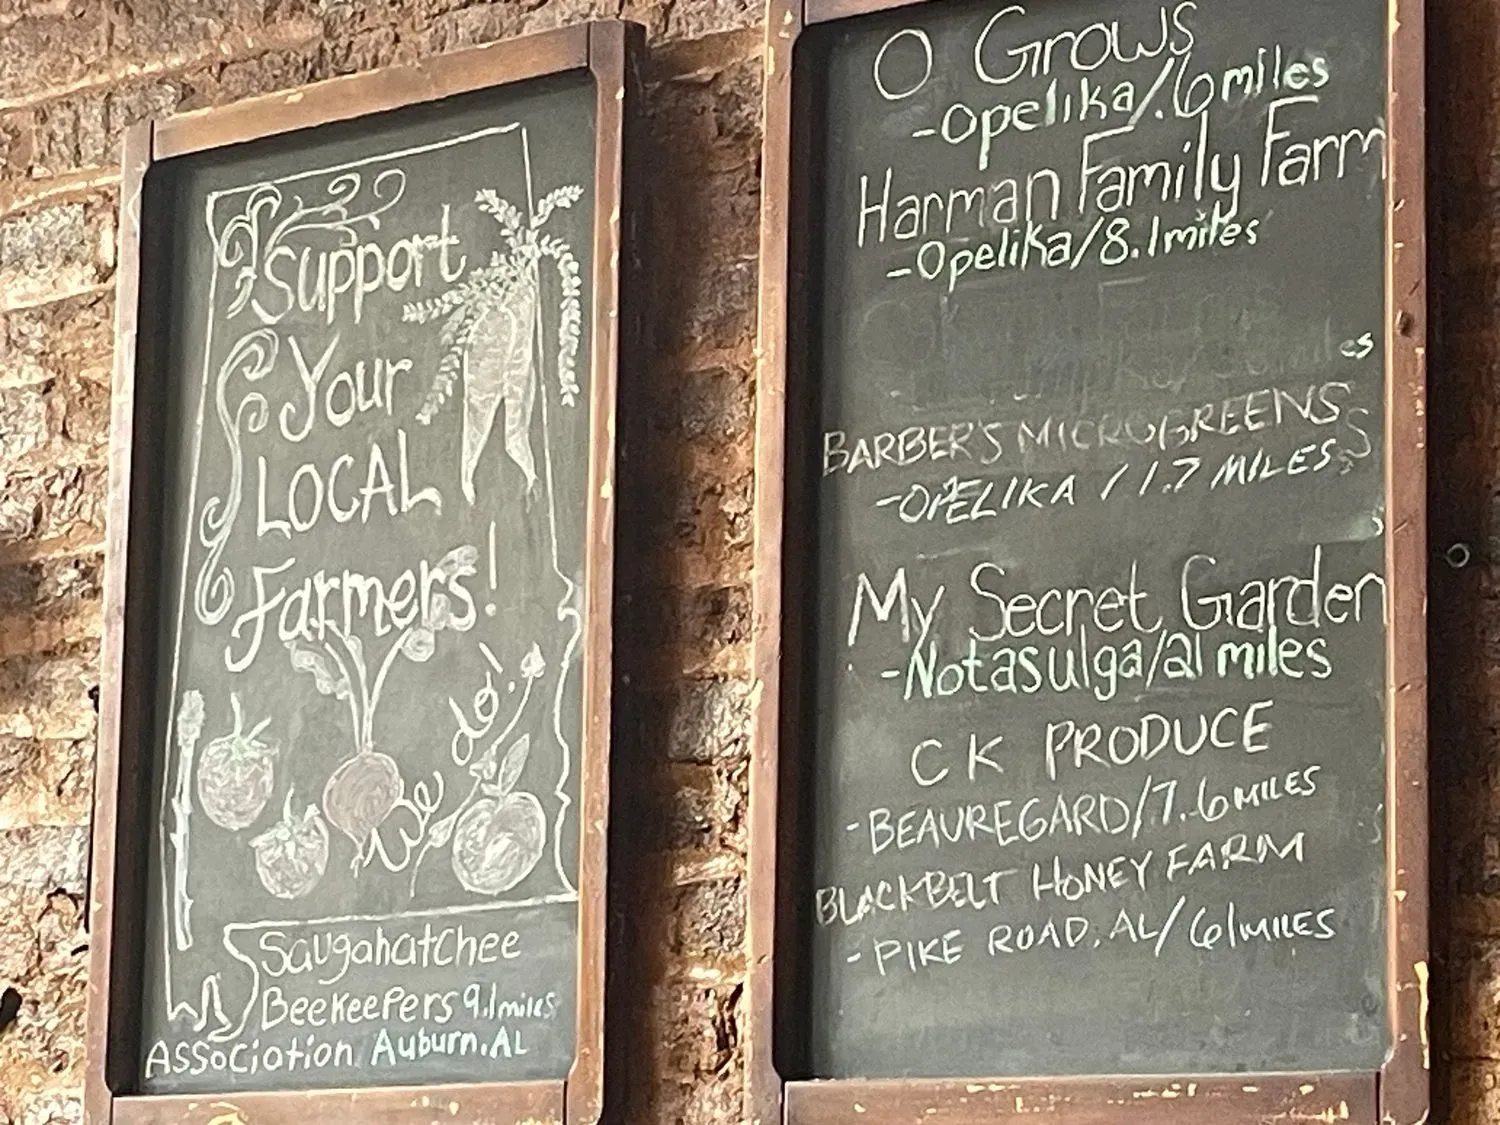 Support
Your
LOCAL
Farmers!
We do!
Saugahatchee
Beekeepers 9.1 miles
Association Auburn, AL
O Grows
-Opelika/.6 miles
Harman Family Farm
-Opelika/8.1 miles
BARBER'S MICROGREENS
-OPELIKA / 1.7 MILES
My Secret Garden
-Notasulga/21 miles
CK PRODUCE
-BEAUREGARD/7.6 MILES
BLACKBELT HONEY FARM
- PIKE ROAD, AL/ 61 MILES